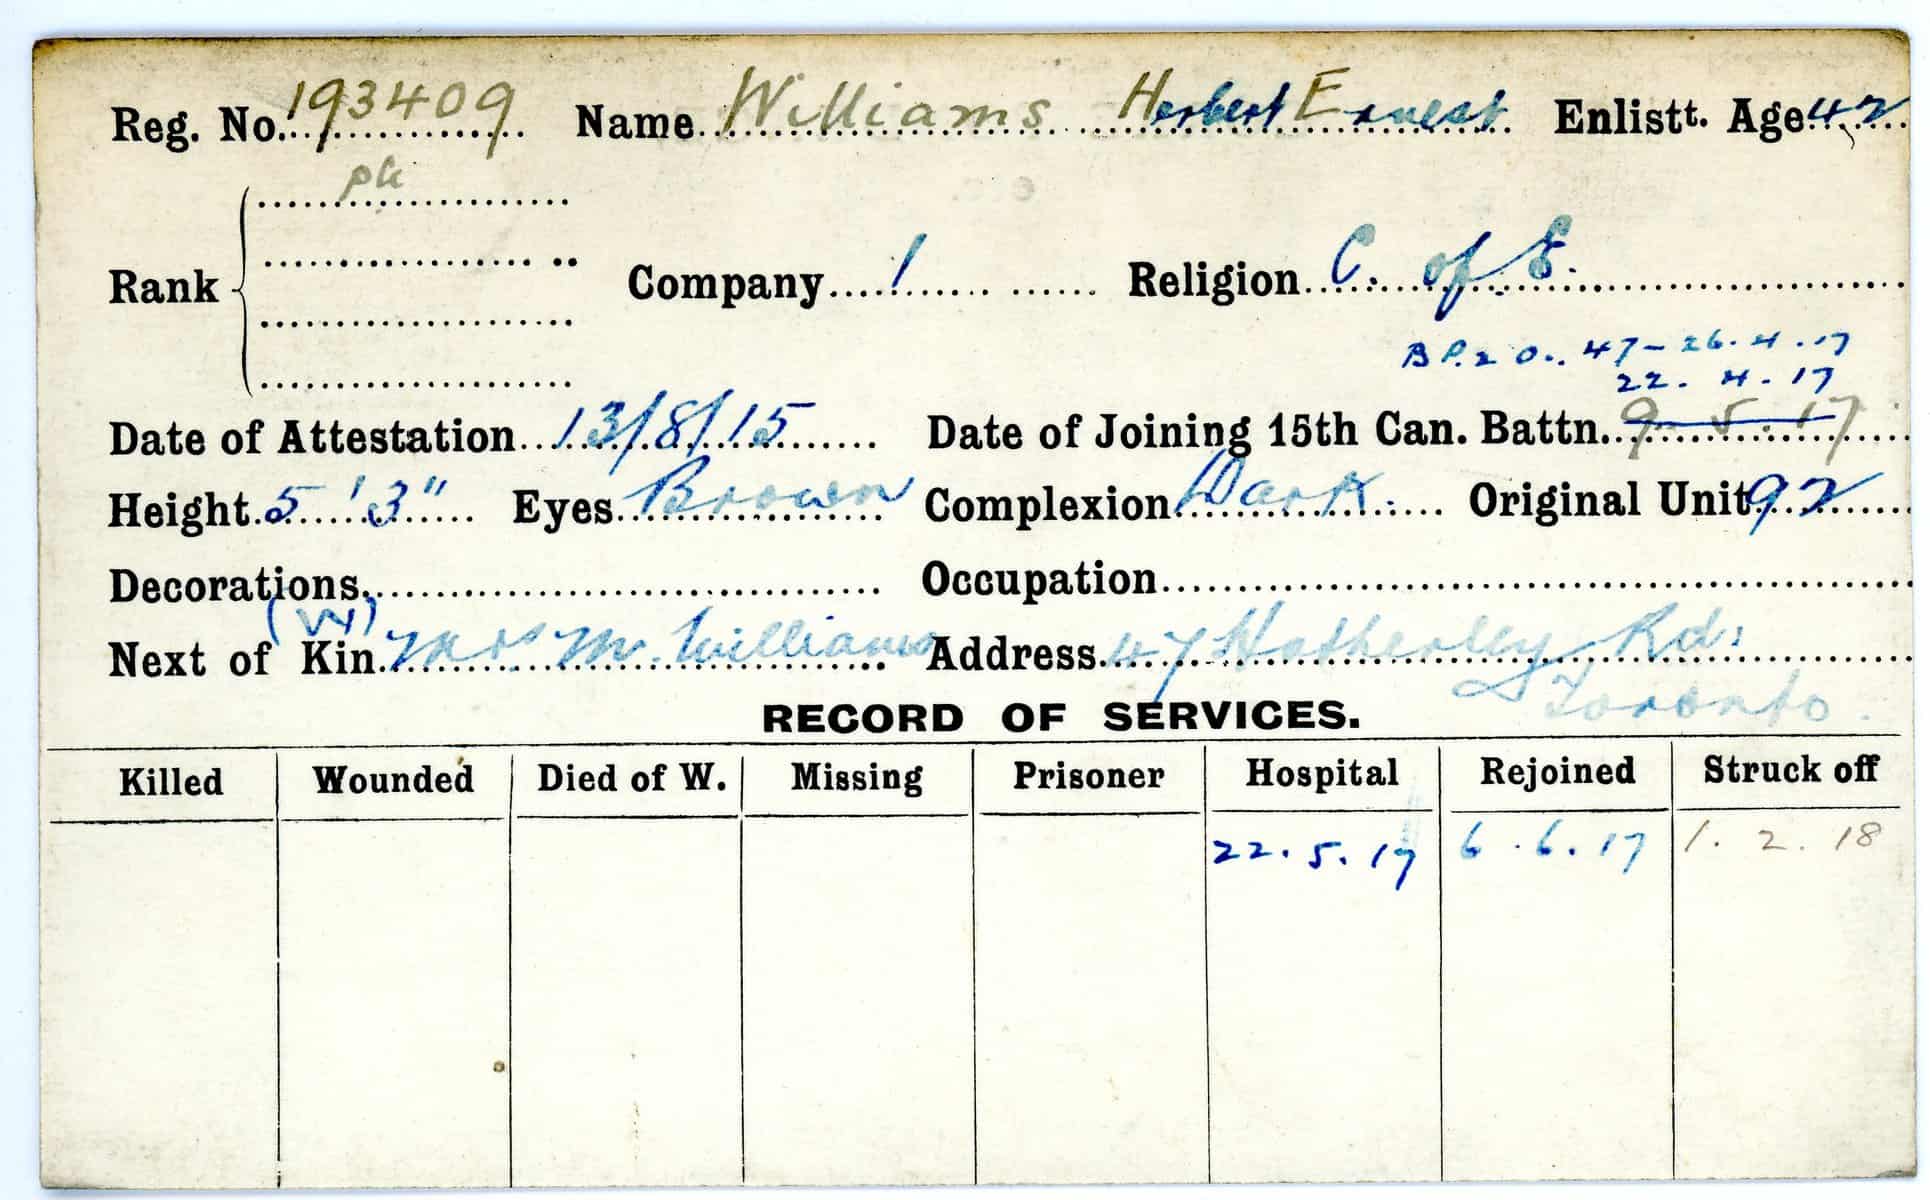 Reg. No. 193409 Name Williams Herbert Ernest Enlistt. Age 42
Rank pte
Company 1 Religion C. of E.
B P. 2 O.. 47 - 26. 4. 17
22. 4. 17
Date of Attestation 13/8/15 Date of Joining 15th Can. Battn. 9 5 17
Height 5'3" Eyes Brown Complexion Dark. Original Unit 92
Decorations Occupation
(W)
Next of Kin Mrs M. Williams Address 47 Hatherley Rd.
Toronto.
RECORD OF SERVICES.
Killed Wounded Died of W. Missing Prisoner Hospital Rejoined Struck off
22. 5. 17 6. 6. 17 1. 2. 18